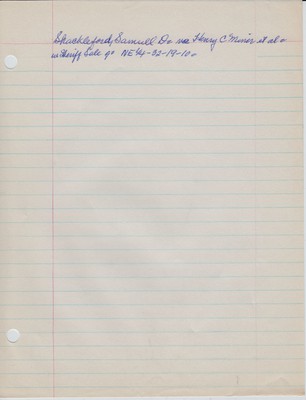 Shackleford, Samuell D. vs. Henry C Minor et al.
in Sheriff Sale of NE¼-22-19-10.